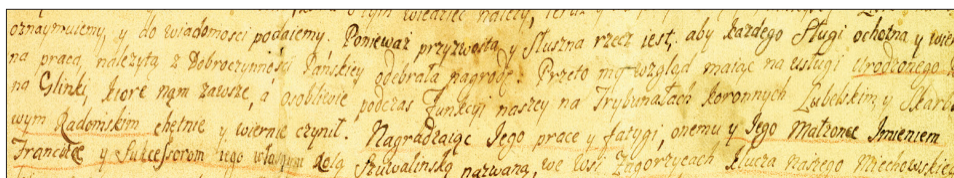 o tym wiedzieć należy, teraz y
oznaymuiemy, y do wiadomosci podaiemy. Ponieważ przyzwoita y słuszna rzecz iest, aby każdego sługi ochotna y wier
na praca, należytą z Dobroczynnosci Pańskiey odebrała nagrodę. Przeto my wzgląd maiąc na usługi Urodzonego
na Glinki, ktore nam zawsze, a osobliwie podczas Funkcyi naszey na Trybunałach koronnych Lubelskim y Skarbo
wym Radomskim chętnie y wiernie czynił. Nagradzaiąc Jego prace y fatygi, onemu y Jego Małżonce Imieniem
Franciszce y Sukcessorom iego własnym dolą Szuwalinską nazwaną, we Wsi Zagorzycach klucza naszego Miechowskie